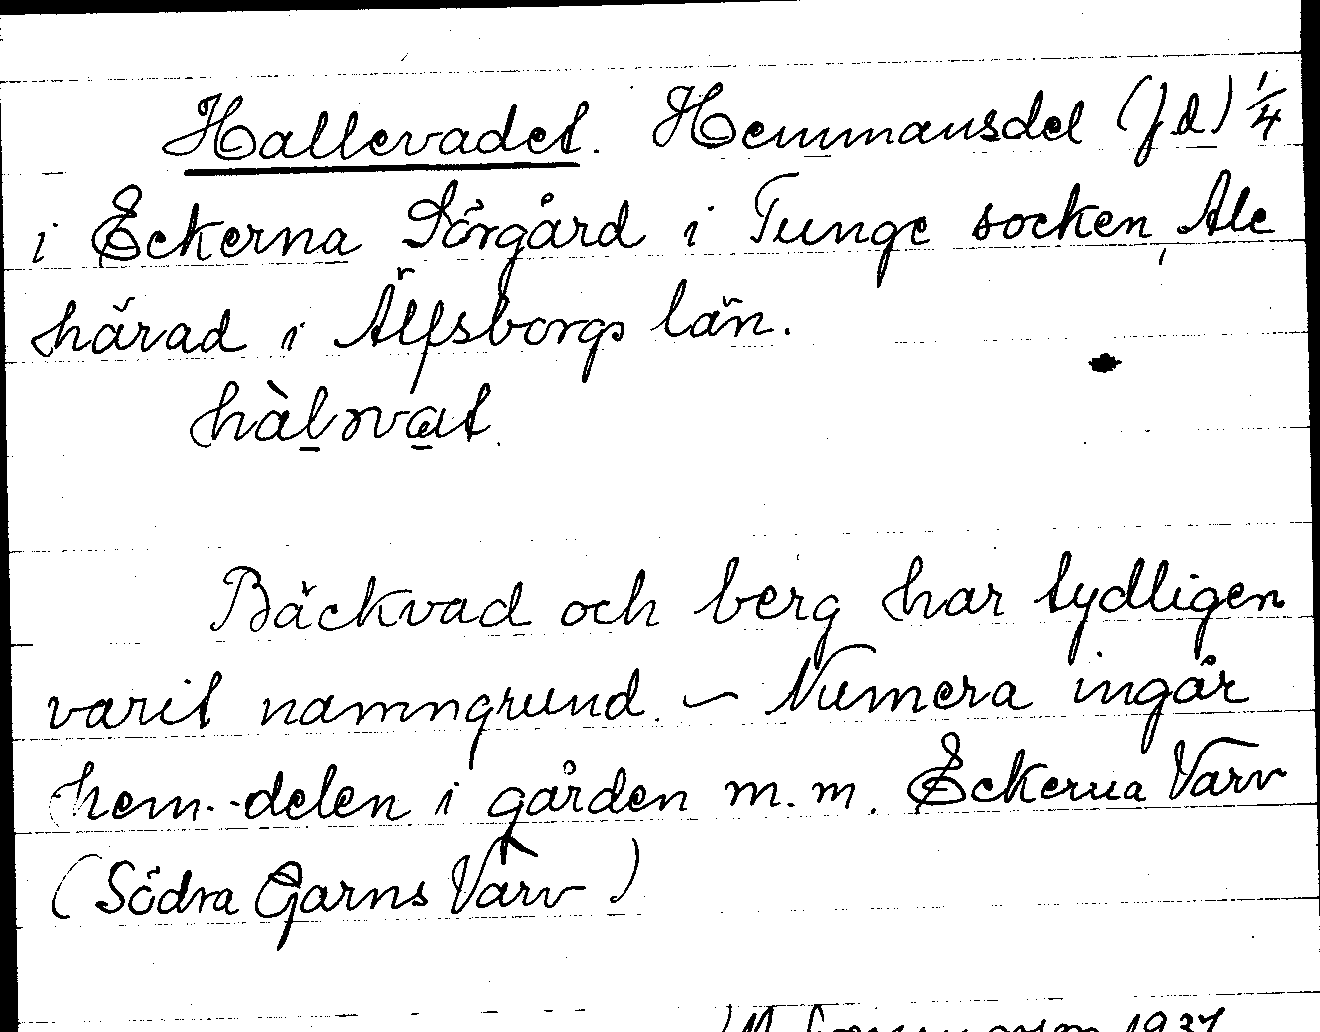 Hallevadet. Hemmansdel (Jd) 1/4
i Eckerna Sörgård i Tunge socken, Ale
härad i Älfsborgs län.
hàlrvat.
Bäckvad och berg har tydligen
varit namngrund. – Numera ingår
hem.-delen i gården m.m. Eckerna Varv
(Södra Garns Varv)
1937